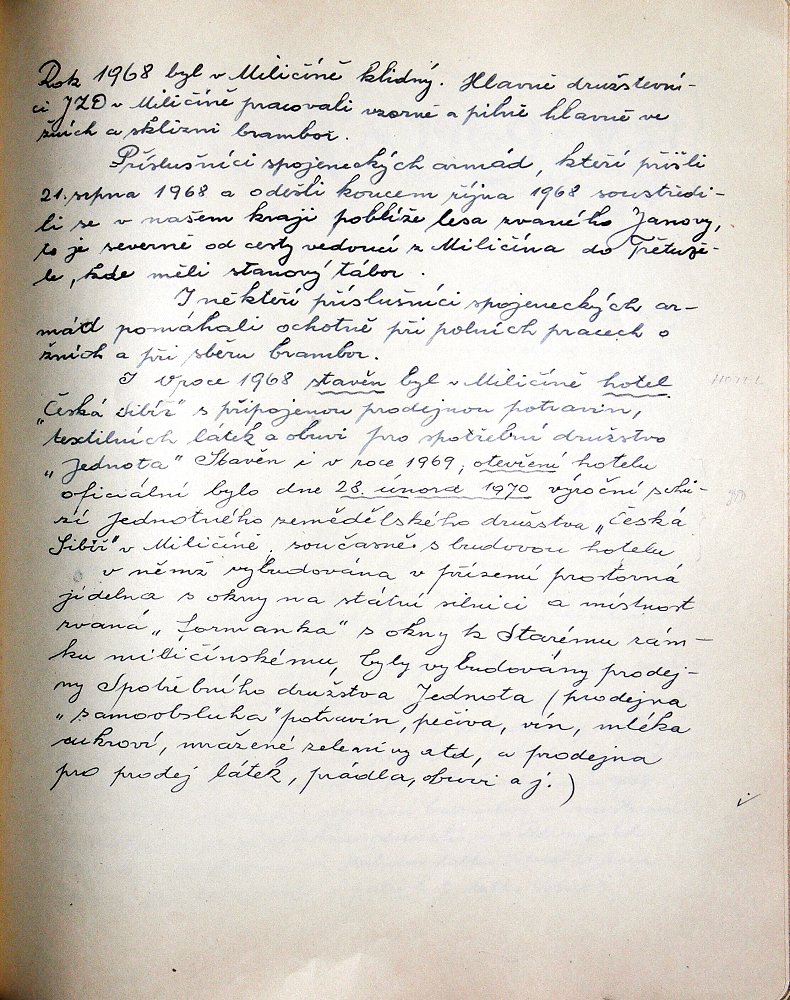 Rok 1968 byl v Miličíně klidný. Hlavně družstevní-
ci JZD v Miličíně pracovali vzorně a pilně hlavně ve
žních a sklizni brambor.
Příslušníci spojeneckých armád, kteří přišli
21. srpna 1968 a odešli koncem října 1968 soustředi-
li se v našem kraji poblíže lesa zvaného Janovy,
to je severně od cesty vedoucí z Miličína do Třetuže-
le, kde měli stanový tábor.
I někteří příslušníci spojeneckých ar-
mád pomáhali ochotně při polních pracech o
žních a při sběru brambor.
I v roce 1968 stavěn byl v Miličíně hotel HOTEL
"Česká Sibiř" s připojenou prodejnou potravin,
textilních látek a obuvi pro spotřební družstvo
"Jednota" Stavěn i v roce 1969, otevření hotelu
oficiální bylo dne 28. února 1970 výroční schů-
zí Jednotného zemědělského družstva "Česká
Sibiř" v Miličíně, současně s budovou hotelu
v němž vybudována v přízemí prostorná
jídelna s okny na státní silnici a místnost
zvaná "formanka" s okny k Starému zám-
ku miličínskému, byly vybudovány prodej-
ny Spotřebního družstva Jednota (prodejna
"samoobsluha" potravin, pečiva, vín, mléka
cukroví, mražené zeleniny atd, a prodejna
pro prodej látek, prádla, obuvi a j.)